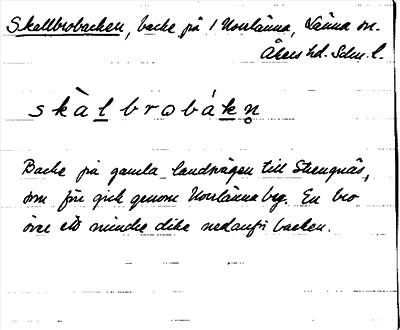 Skallbrobacken, backe på 1 Norrlänna, Länna sn.
Åkers hd. Södm. l.
skàlbrobákn̥
Backe på gamla landsvägen till Strengnäs,
som förr gick genom Norrlänna by. En bro
över ett mindre dike nedanför backen.